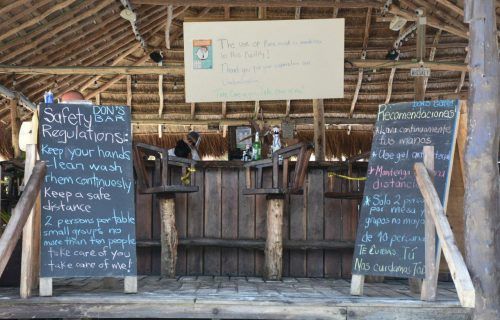 The use of Face mask is mandatory
to this facility!
Thank you for your cooperation and
DON'S
BAR
Safety
Regulations:
Keep your hands
clean wash
them continuosly
Keep a safe
distance
2 persons per table
small groups no
more than ten people
take care of you
take care of me!
DON'S BAR
Recomendaciones:
Lava continuamente
tus manos
Use gel
Mantenga
distancia
* Solo 2 per
por mesa y
grupos no mayor
de 10 personas
TE CUIDAS TÚ
Nos cuidamos Tod